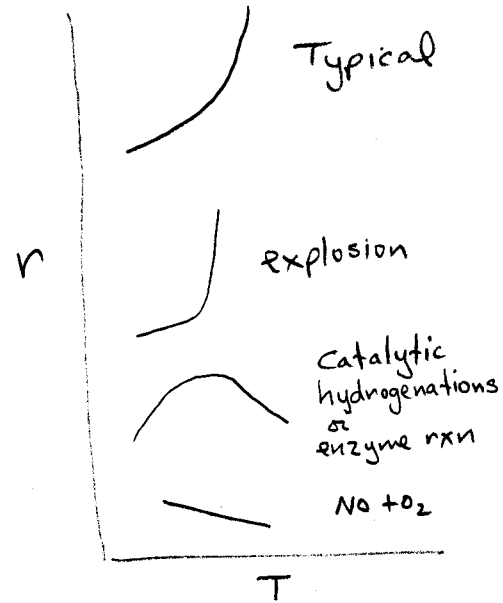 Typical
r
explosion
Catalytic
hydrogenations
or
enzyme rxn
NO + O₂
T